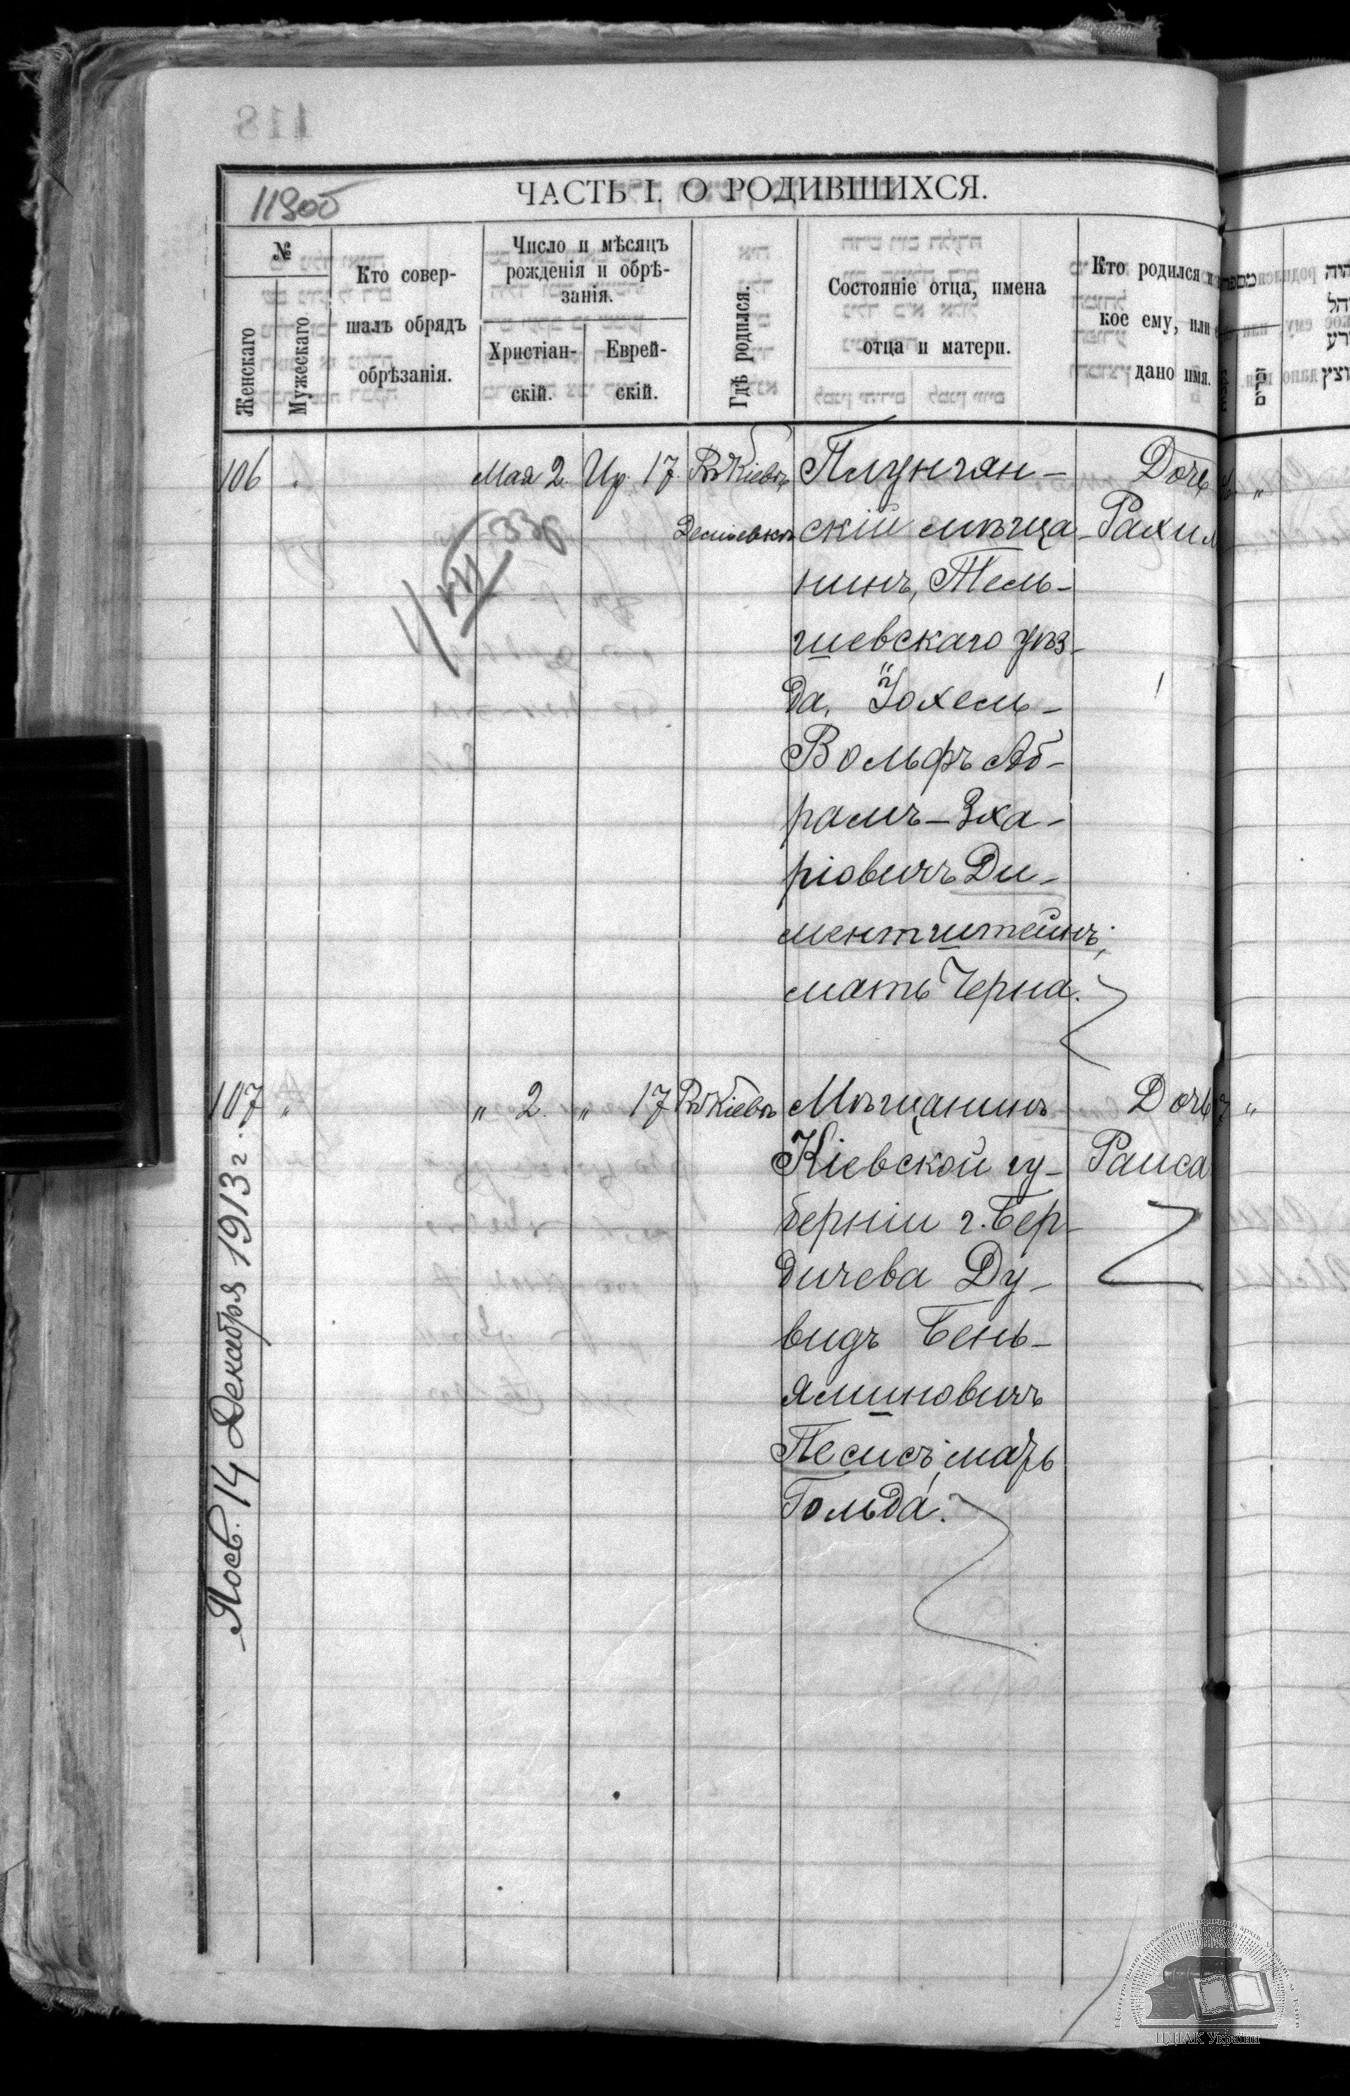 118
1190об
ЧАСТЬ I. О РОДИВШИХСЯ.
№
Женскаго
Мужескаго
Кто совер-
шалъ обрядъ
обрѣзанія.
Число и мѣсяцъ
рожденія и обрѣ-
занія.
Христіан-
скій.
Еврей-
скій.
Гдѣ родился.
Состояніе отца, имена
отца и матери.
Кто родился и
кое ему, или
дано имя.
106
Мая 2.
Ир. 17.
Въ Кіевѣ
Деміевкѣ
Плунгян-
скій мѣща-
нинъ, Тель-
шевскаго уѣз-
да, Іохель-
Вольфъ Аб-
рамъ-Зха-
ріовичъ Ди-
ментштейнъ;
мать Черна.
Дочь
Рахил
107
" 2.
" 17
Въ Кіевѣ
Мѣщанинъ
Кіевской гу-
берніи г. Бер-
дичева Ду-
видъ Бень-
яминовичъ
Песисъ, мать
Гольда.
Дочь
Раиса
14 Декабря 1913 г.
ЦДІАК України